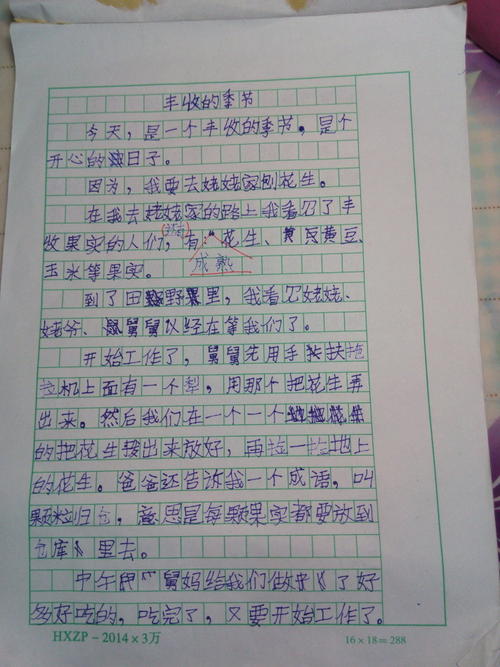 丰收的季节
今天，是一个丰收的季节，是个
开心的日子。
因为，我要去姥姥家刨花生。
在我去姥姥家的路上我看见了丰
收果实的人们，有花生、黄豆、
成熟
玉米等果实。
到了田野里，我看见姥姥、
姥爷、舅舅以经在等我们了。
开始工作了，舅舅先用手扶拖
拉机上面有一个犁，用那个把花生弄
出来。然后我们在一个一个
的把花生拔出来放好，再捡一捡地上
的花生。爸爸还告诉我一个成语，叫
颗粒归仓，意思是每颗果实都要放到
仓库里去。
中午舅妈给我们做了好
多好吃的，吃完了，又要开始工作了。
HXZP－2014×3万
16×18＝288